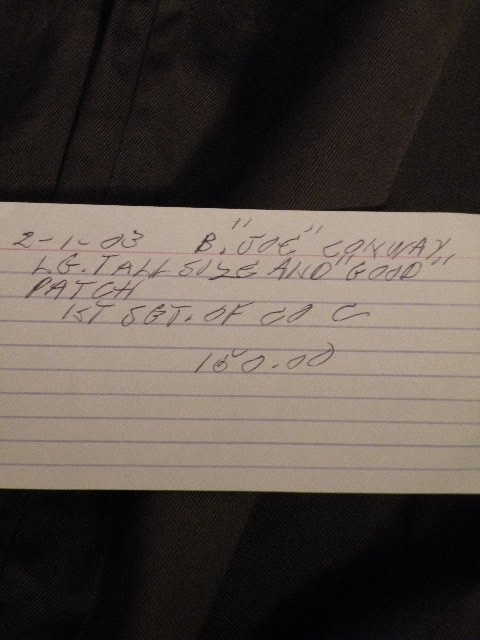 2-1-03 B. "JOE" CONWAY
LG. TALL SIZE AND "GOOD"
PATCH
1ST SGT. OF CO C
150.00